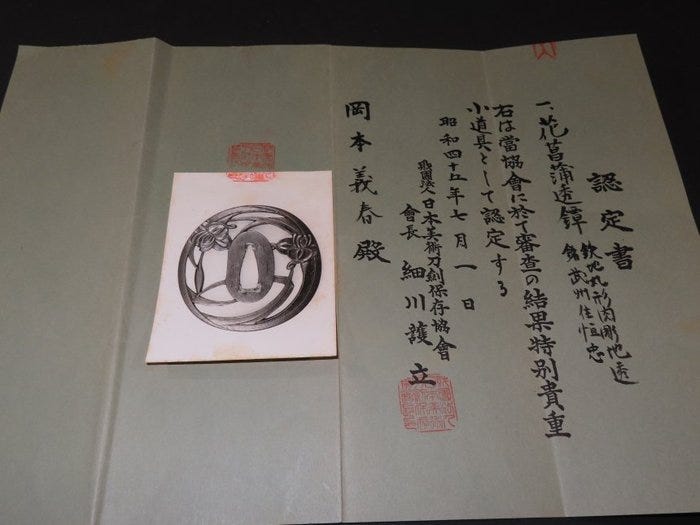 認定書
一、花菖蒲透鐔
鉄地丸形肉彫地透
銘 武州住恒忠
右は當協會に於て審査の結果特別貴重
小道具として認定する
昭和四十五年七月一日
財團法人日本美術刀劍保存協會
會長 細川護立
岡本義春殿